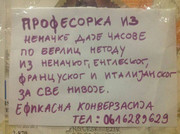 ПРОФЕСОРКА ИЗ
НЕМАЧКЕ ДАЈЕ ЧАСОВЕ
ПО БЕРЛИЦ МЕТОДУ
ИЗ НЕМАЧКОГ, ЕНГЛЕСКОГ,
ФРАНЦУСКОГ И ИТАЛИЈАНСКОГ
ЗА СВЕ НИВОЕ.
ЕФИКАСНА КОНВЕРЗАЦИЈА
ТЕЛ: 0616289629